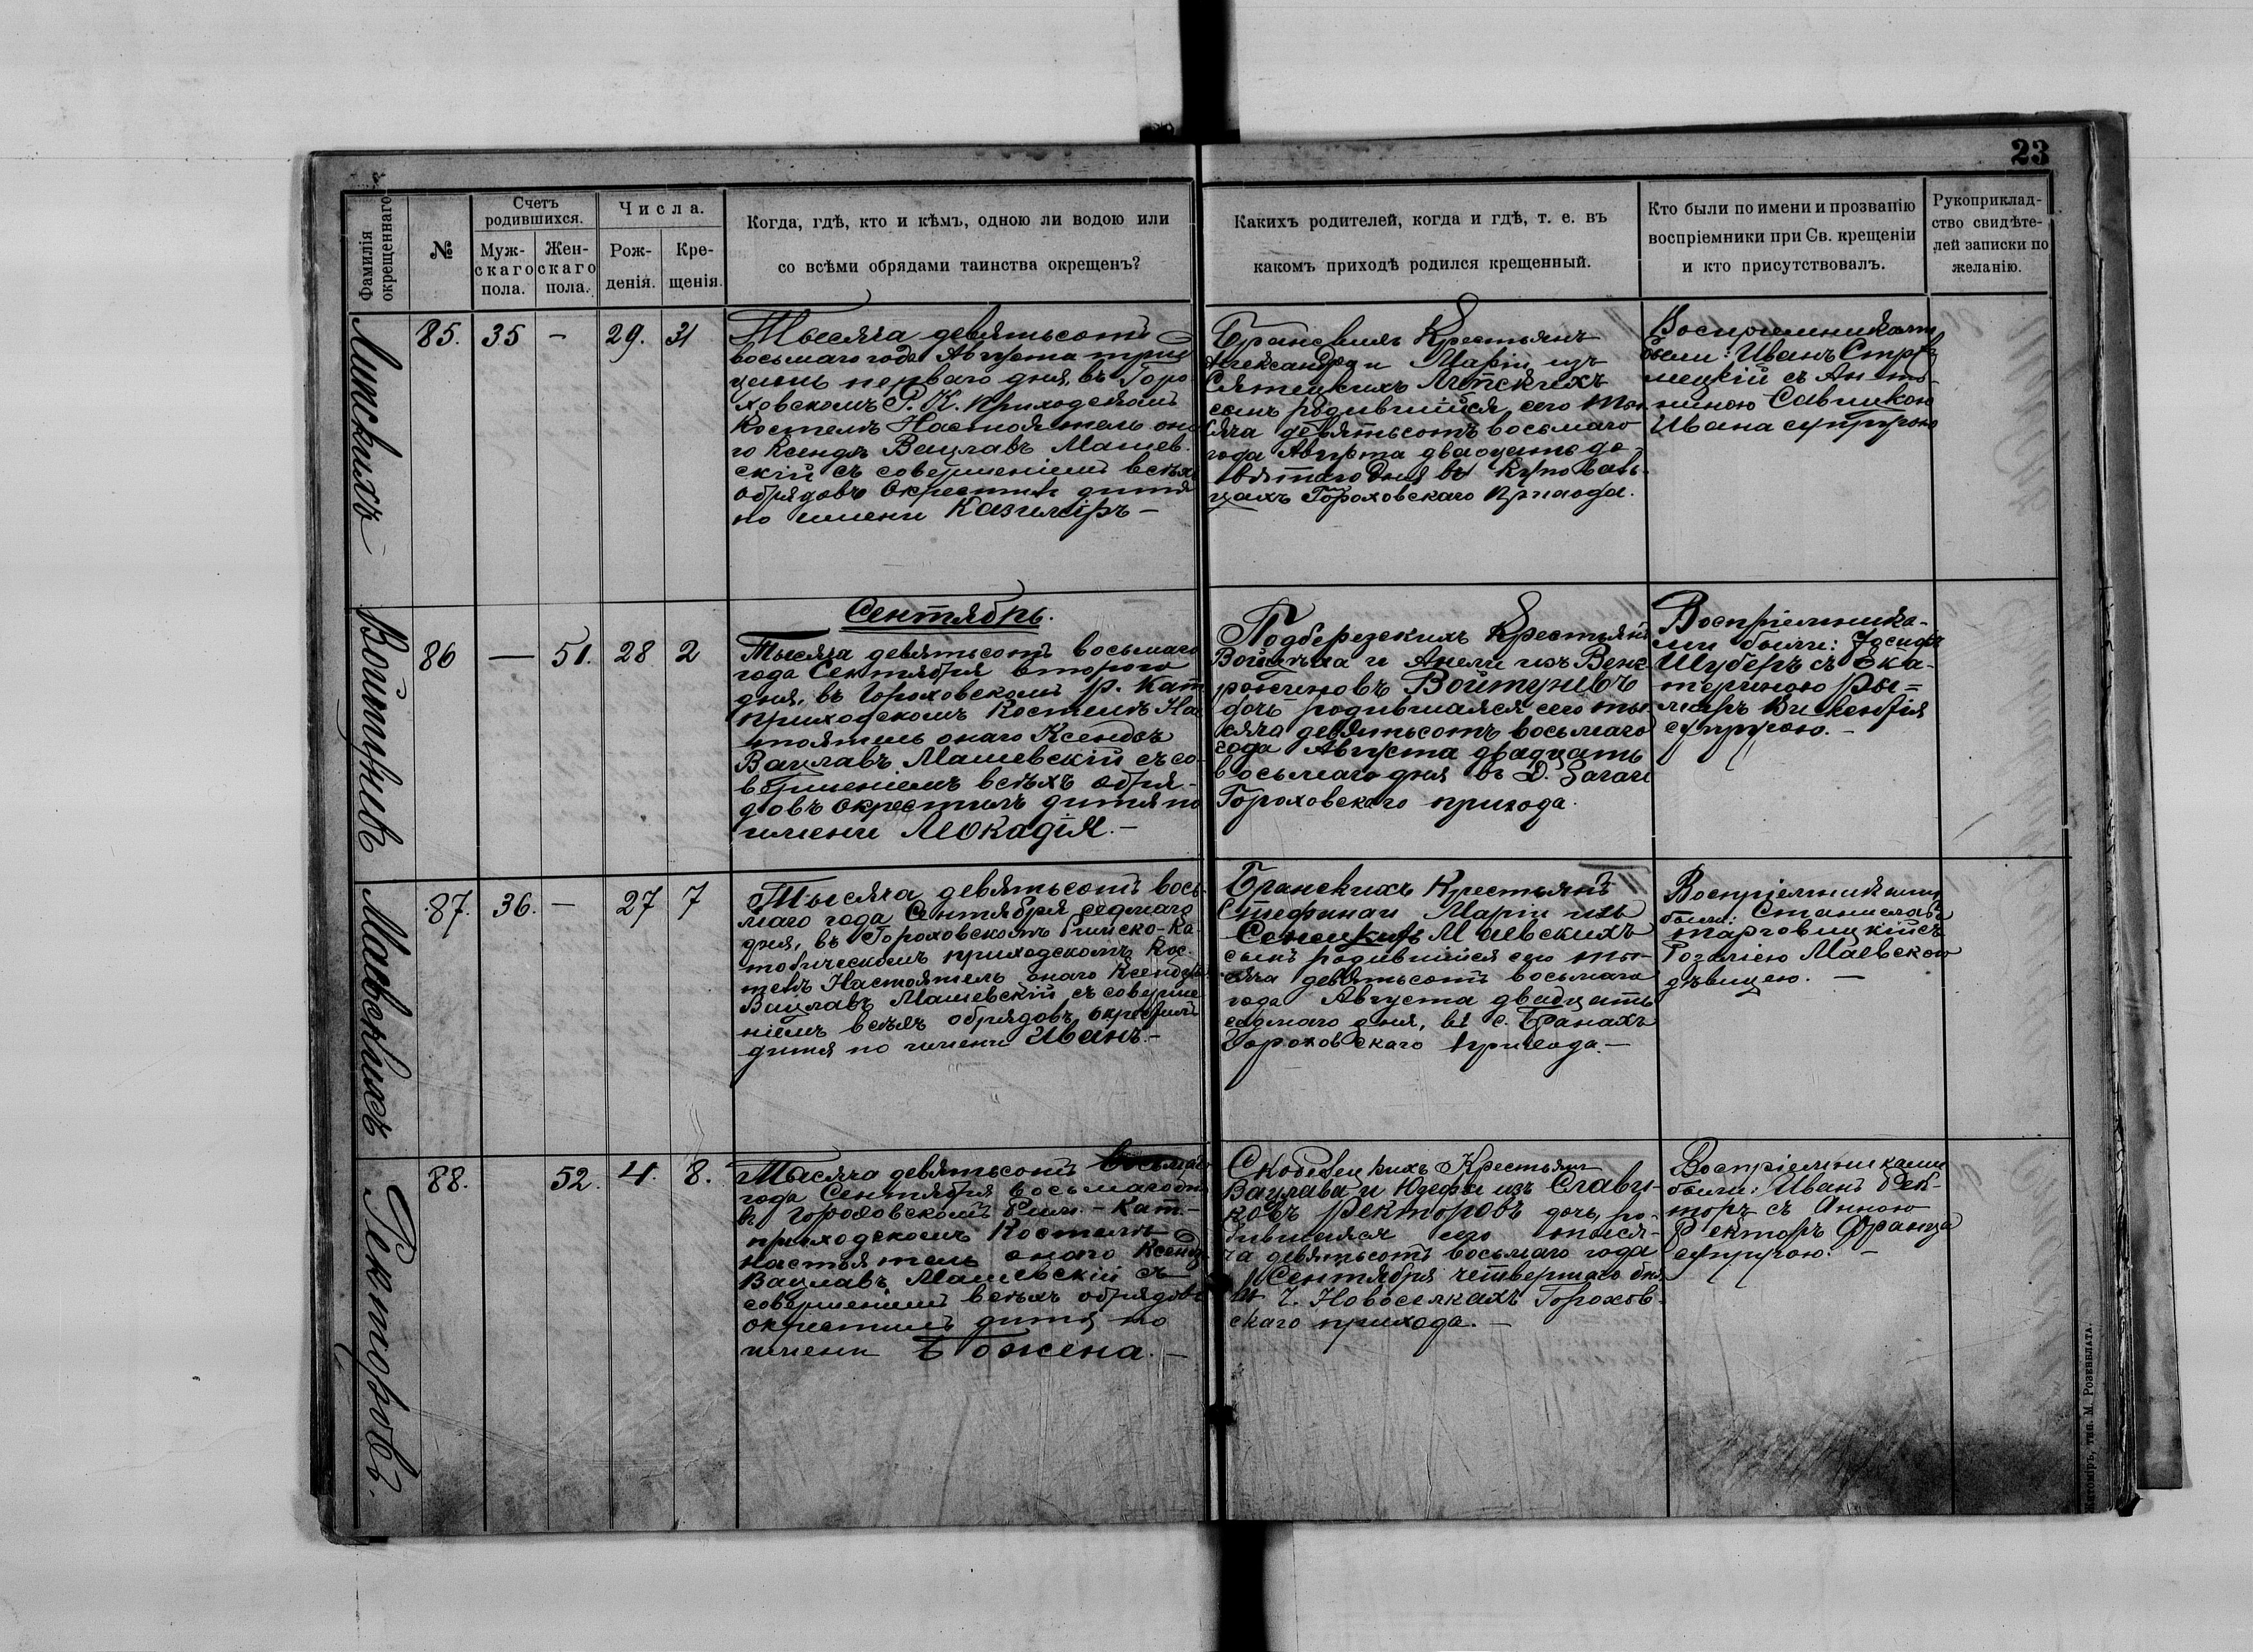 23
Фамилія
окрещеннаго
№
Счетъ
родившихся.
Муж-
скаго
пола.
Жен-
скаго
пола.
Числа.
Рож-
денія.
Кре-
щенія.
Когда, гдѣ, кто и кѣмъ, одною ли водою или
со всѣми обрядами таинства окрещенъ?
Какихъ родителей, когда и гдѣ, т. е. въ
какомъ приходѣ родился крещенный.
Кто были по имени и прозванію
воспріемники при Св. крещеніи
и кто присутствовалъ.
Рукоприклад-
ство свидѣте-
лей записки по
желанію.
Липскихъ
85. 35 - 29. 31
Тысяча девятьсотъ
восьмаго года Августа трид
цать перваго дня, въ Горо
ховскомъ Р. К. приходскомъ
Костелѣ Настоятель она
го Ксендзъ Вацлавъ Машев-
скій съ совершеніемъ всѣхъ
обрядовъ окрестилъ дитя
по имени Казиміръ -
Крестьянъ
Александра и Маріи изъ
Липскихъ
сынъ родившійся сего ты-
сяча девятьсотъ восьмаго
года Августа двадцать де-
вятаго дня въ
цахъ Гороховскаго прихода.
Воспріемниками
были: Иванъ
съ Анто-
ниною Савицкою
Ивана супругою
Войтунивъ
86 — 51. 28 2
Сентябрь.
Тысяча девятьсотъ восьмаго
года Сентября второго
дня, въ Гороховскомъ Р. Кат
приходскомъ Костелѣ Нас
тоятель онаго Ксендзъ
Вацлавъ Машевскій съ со-
вершеніемъ всѣхъ обря-
довъ окрестилъ дитя по
имени Леокадія. -
Подберезскихъ Крестьянъ
и Анели изъ Венг
Войтунивъ
дочь родившаяся сего ты
сяча девятьсотъ восьмаго
года Августа двадцать
восьмаго дня въ
Гороховскаго прихода.
Воспріемника-
ми были: Іосифъ
Шуберъ съ Ека-
териною Ры=
маръ Викентія
супругою. -
Маевскихъ
87. 36. - 27 7
Тысяча девятьсотъ вось-
маго года Сентября седмаго
дня, въ Гороховскомъ Римско-Ка
толическомъ приходскомъ Кос-
телѣ Настоятель онаго Ксендзъ
Вацлавъ Машевскій съ соверше
ніемъ всѣхъ обрядовъ окрестилъ
дитя по имени Иванъ. -
Бранскихъ Крестьянъ
Стефана и Маріи изъ
Маевскихъ
сынъ родившійся сего ты-
сяча девятьсотъ восьмаго
года Августа двадцать
седмаго дня, въ с. Бранахъ
Гороховскаго прихода. -
Воспріемниками
были: Станиславъ
Тарговицкій съ
Розаліею Маевскою
дѣвицею. -
Ректоровъ.
88. 52. 4. 8.
Тысяча девятьсотъ восьмаго
года Сентября восьмаго дня
въ Гороховскомъ Рим. - Кат. -
приходскомъ Костелѣ
Настоятель онаго Ксендзъ
Вацлавъ Машевскій съ
совершеніемъ всѣхъ обрядовъ
окрестилъ дитя по
имени Божена. -
Скобелецкихъ Крестьянъ
Вацлава и Юзефы изъ Слави-
ковъ Ректоровъ дочь, ро-
дившаяся сего тыся-
ча девятьсотъ восьмаго года
Сентября четвертаго дня
въ Ч. Новоселкахъ Горохов-
скаго прихода. -
Воспріемниками
были: Иванъ Рек-
торъ съ Анною
Ректоръ Франца
супругою. -
Житоміръ, тип. М. Розенблата.